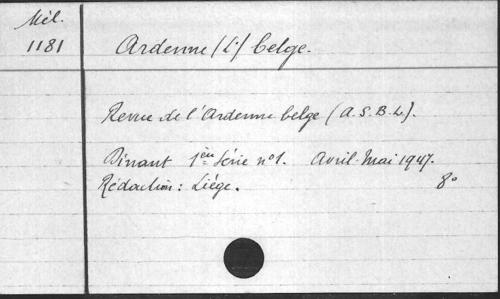 Mél.
1181
Ardenne (L') belge.
Revue de l'Ardenne belge (A.S.B.L.).
Dinant 1ère Série n°1. Avril-Mai 1947.
Rédaction: Liége. 8°